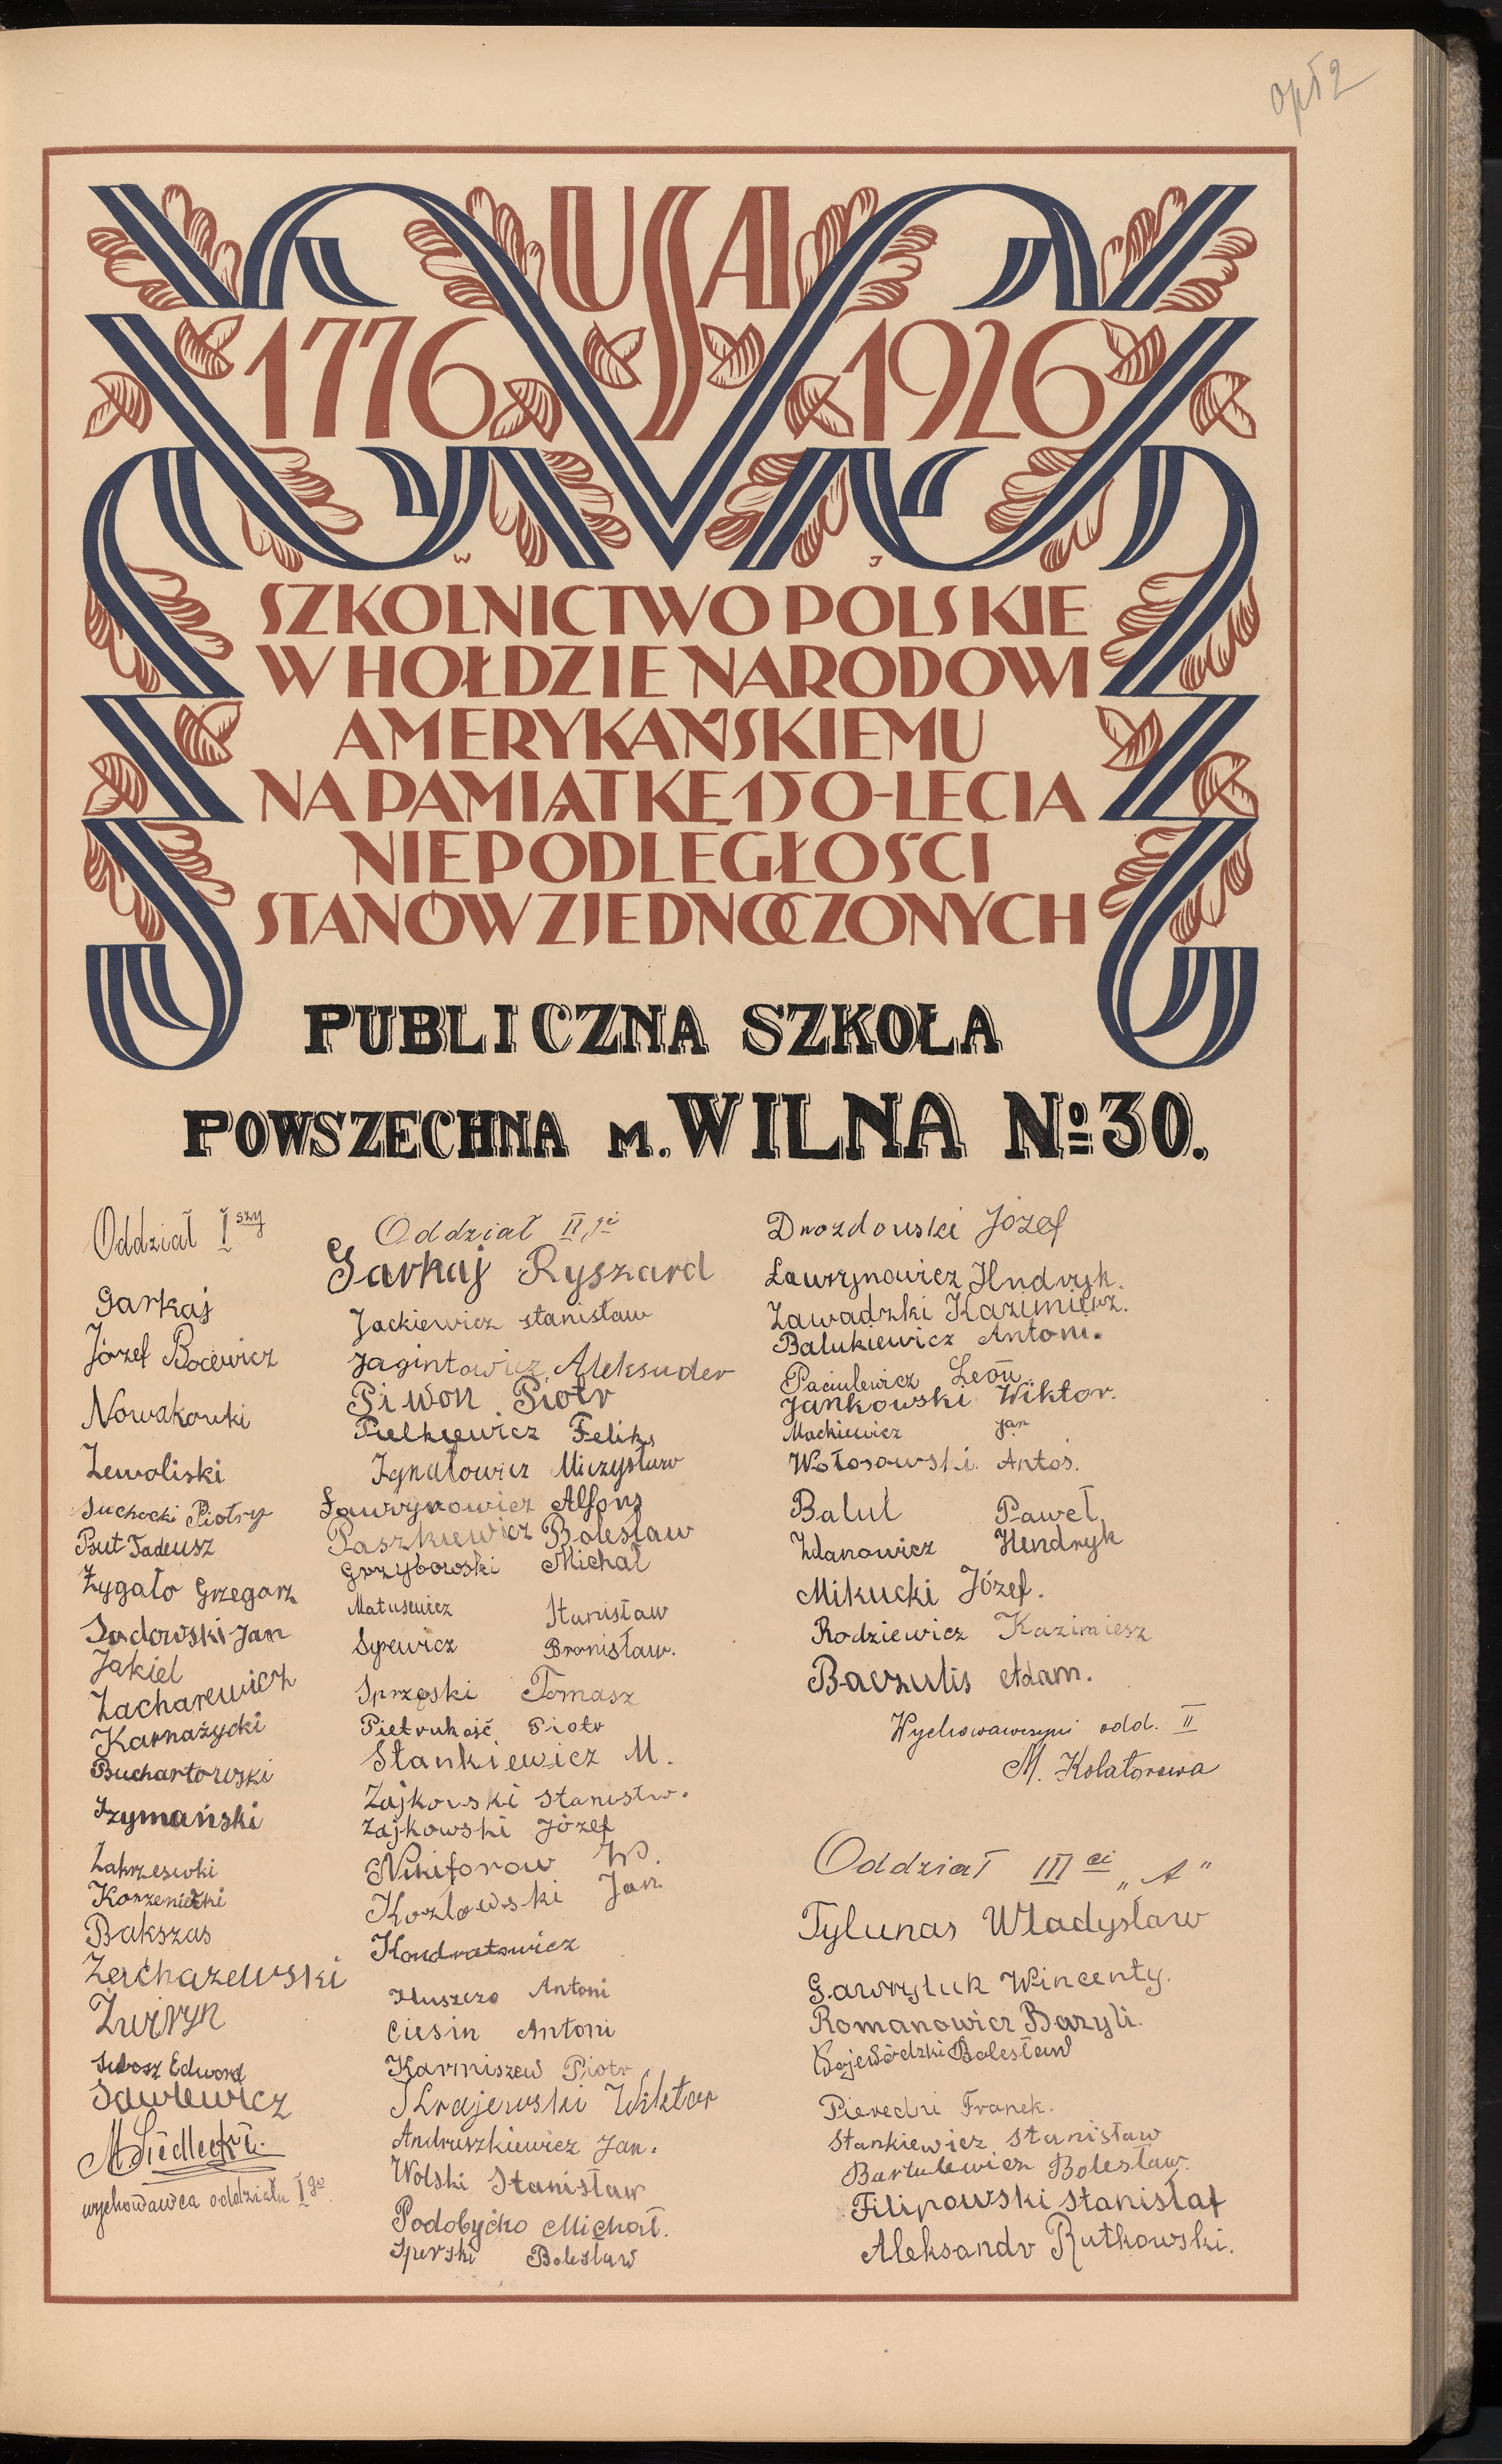 opł2
USA
1776 1926
W J
SZKOLNICTWO POLSKIE
W HOŁDZIE NARODOWI
AMERYKAŃSKIEMU
NA PAMIĄTKĘ 150-LECIA
NIEPODLEGŁOŚCI
STANÓW ZJEDNOCZONYCH
PUBLICZNA SZKOŁA
POWSZECHNA M. WILNA Nº 30.
Oddział I szy
Garkaj
Józef Bocewicz
Nowakowki
Zewaliski
Suchocki Piotry
But Tadeusz
Żygało Grzegorz
Sadowski Jan
Jakiel
Zacharewicz
Karnażycki
Buchartowski
Szymański
Zakrzeswki
Korzeniecki
Bakszas
Zachazewski
Żwiryn
Subosz Edward
Sawlewicz
M. Siedlecki
wychowawca oddziału I go
Oddział II gi
Garkaj Ryszard
Jackiewicz Stanisław
Jagintowicz Aleksuder
Piwon Piotr
Pielkiewicz Feliks
Ignatowicz Mieczysław
Ławrynowicz Alfons
Paszkiewicz Bolesław
Grzybowski Michał
Matusewicz Stanisław
Syrewicz Bronisław.
Sprzęski Tomasz
Pietrukość Piotr
Stankiewicz M.
Zajkowski Stanistw.
Zajkowski Józef
Nikiforow W.
Kozłowski Jan
Kondratowicz
Huszczo Antoni
Ciesin Antoni
Karniszew Piotr
Krajewski Wiktor
Andruszkiewicz Jan.
Wolski Stanisław
Podobyćko Michał.
Sperski Bolesław
Drozdowski Józef
Ławrynowicz Hndryk.
Zawadzki Kazimierz.
Balukiewicz Antoni.
Paciulewicz Leon.
Jankowski Wiktor.
Mackiewicz Jan
Wołosowski Antoś.
Balul Paweł
Zdanowicz Hendryk
Mikucki Józef.
Rodziewicz Kazimiesz
Baczulis Adam.
Wychowawczyni odd. II
M. Kolatorowa
Oddział III ci „A"
Tylunas Władysław
Gawryluk Wincenty.
Romanowicz Bazyli.
Wojewódzki Bolesław
Pieredni Franek.
Stankiewicz Stanisław
Bartulewicz Bolesław.
Filipowski Stanisław
Aleksandr Rutkowski.